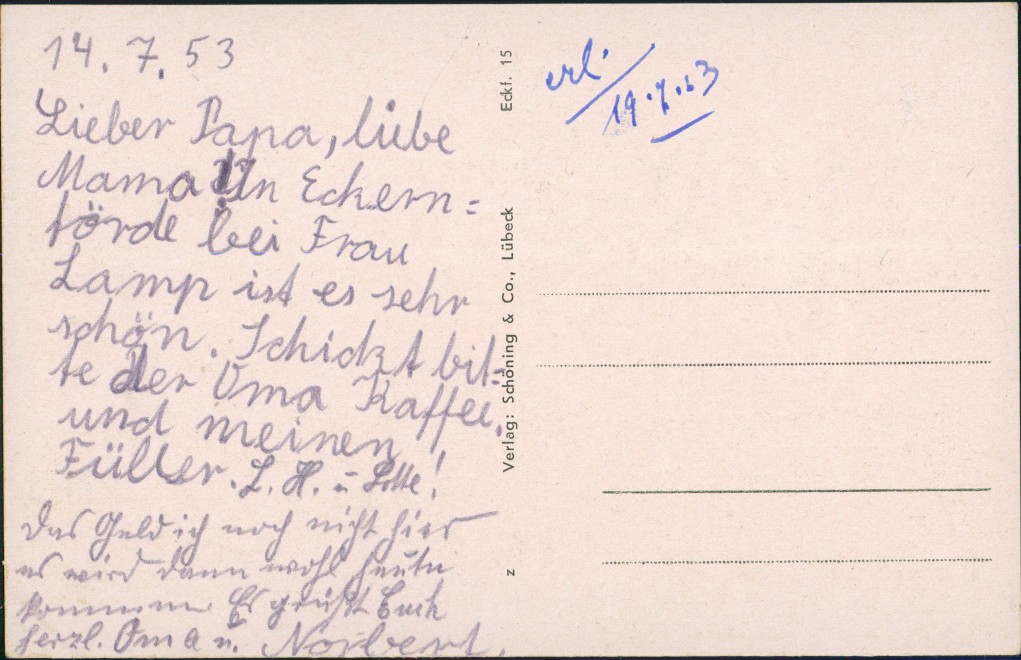 14. 7. 53
Lieber Papa, liebe
Mama! In Eckern=
förde bei Frau
Lamp ist es sehr
schön. Schickt bit=
te der Oma Kaffee,
und meinen
Füller. L. H. u. Lotte!
Das Geld ist noch nicht hier
es wird dann wohl heute
kommen. Es grüßt Euch
herzl. Oma u. Norbert.
Verlag: Schöning & Co., Lübeck
Eckf. 15
z
erl.
19.7.53